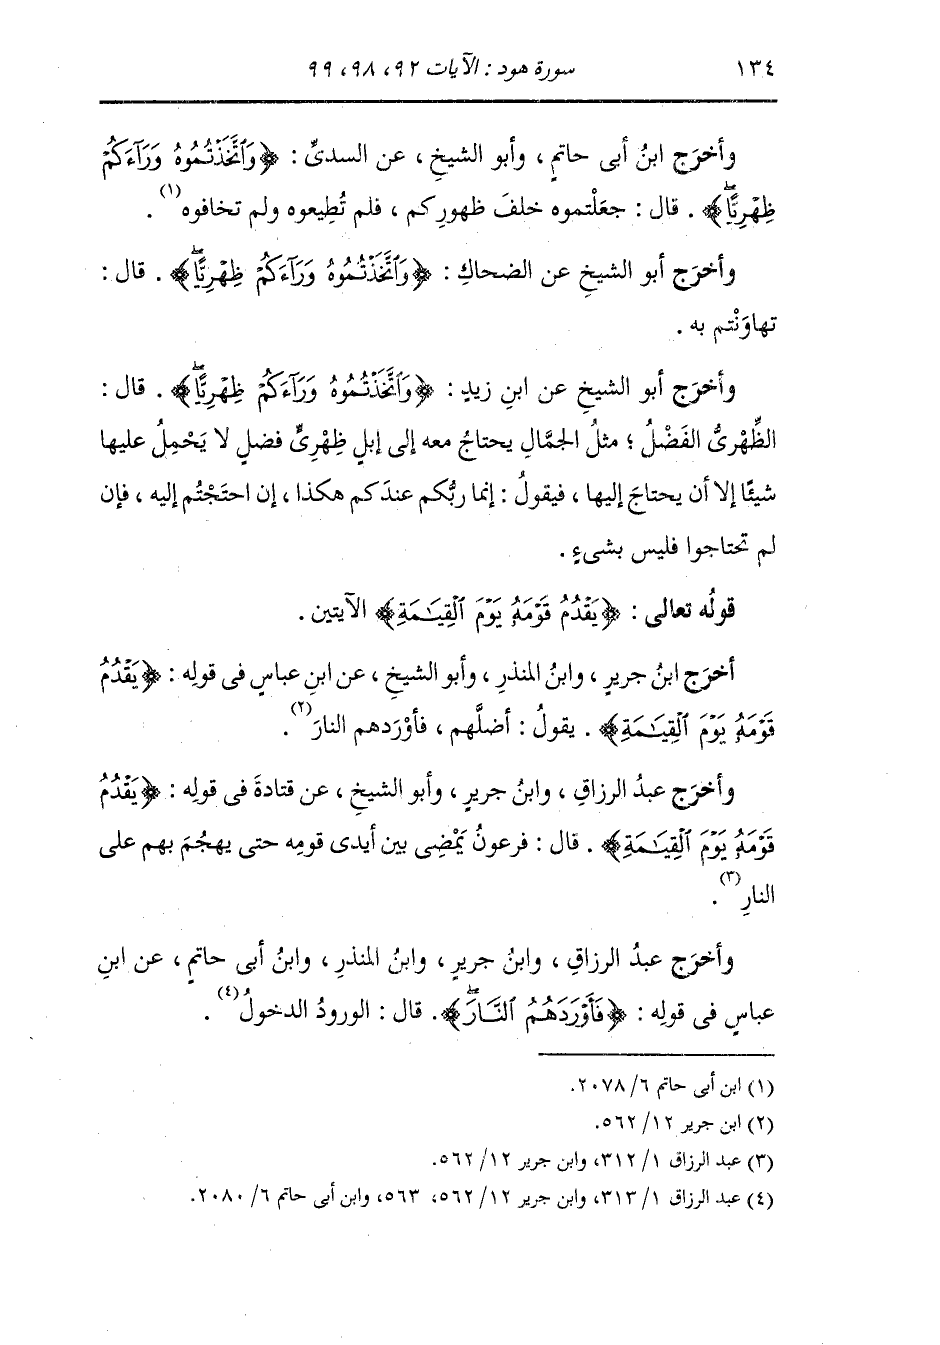 ١٣٤ سورة هود : الآيات ٩٢، ٩٨، ٩٩
وأخرَج ابنُ أبى حاتمٍ ، وأبو الشيخِ ، عن السدىِّ : ﴿وَٱتَّخَذْتُمُوهُ وَرَآءَكُمْ
ظِهْرِيًّاۖ﴾ . قال : جعَلْتموه خلفَ ظهورِكم ، فلم تُطِيعوه ولم تخافوه(١) .
وأخرَج أبو الشيخِ عن الضحاكِ : ﴿وَٱتَّخَذْتُمُوهُ وَرَآءَكُمْ ظِهْرِيًّاۖ﴾ . قال :
تهاوَنْتم به .
وأخرَج أبو الشيخِ عن ابنِ زيدٍ : ﴿وَٱتَّخَذْتُمُوهُ وَرَآءَكُمْ ظِهْرِيًّاۖ﴾ . قال :
الظِّهْرىُّ الفَضْلُ ؛ مثلُ الجمَّالِ يحتاجُ معه إلى إبلٍ ظِهْرِىٍّ فضلٍ لا يَحْمِلُ عليها
شيئًا إلا أن يحتاجَ إليها ، فيقولُ : إنما ربُّكم عندَكم هكذا ، إن احتَجْتُم إليه ، فإن
لم تحتاجوا فليس بشىءٍ .
قولُه تعالى : ﴿يَقْدُمُ قَوْمَهُۥ يَوْمَ ٱلْقِيَـٰمَةِ﴾ الآيتين .
أخرَج ابنُ جريرٍ ، وابنُ المنذرِ ، وأبو الشيخِ ، عن ابنِ عباسٍ فى قولِه : ﴿يَقْدُمُ
قَوْمَهُۥ يَوْمَ ٱلْقِيَـٰمَةِ﴾ . يقولُ : أضلَّهم ، فأوْرَدهم النارَ(٢) .
وأخرَج عبدُ الرزاقِ ، وابنُ جريرٍ ، وأبو الشيخِ ، عن قتادةَ فى قولِه : ﴿يَقْدُمُ
قَوْمَهُۥ يَوْمَ ٱلْقِيَـٰمَةِ﴾ . قال : فرعونُ يَمْضِى بين أيدى قومِه حتى يهجُمَ بهم على
النارِ(٣) .
وأخرَج عبدُ الرزاقِ ، وابنُ جريرٍ ، وابنُ المنذرِ ، وابنُ أبى حاتمٍ ، عن ابنِ
عباسٍ فى قولِه : ﴿فَأَوْرَدَهُمُ ٱلنَّارَۖ﴾ . قال : الورودُ الدخولُ(٤) .
(١) ابن أبى حاتم ٦/ ٢٠٧٨.
(٢) ابن جرير ١٢/ ٥٦٢.
(٣) عبد الرزاق ١/ ٣١٢، وابن جرير ١٢/ ٥٦٢.
(٤) عبد الرزاق ١/ ٣١٣، وابن جرير ١٢/ ٥٦٢، ٥٦٣، وابن أبى حاتم ٦/ ٢٠٨٠.